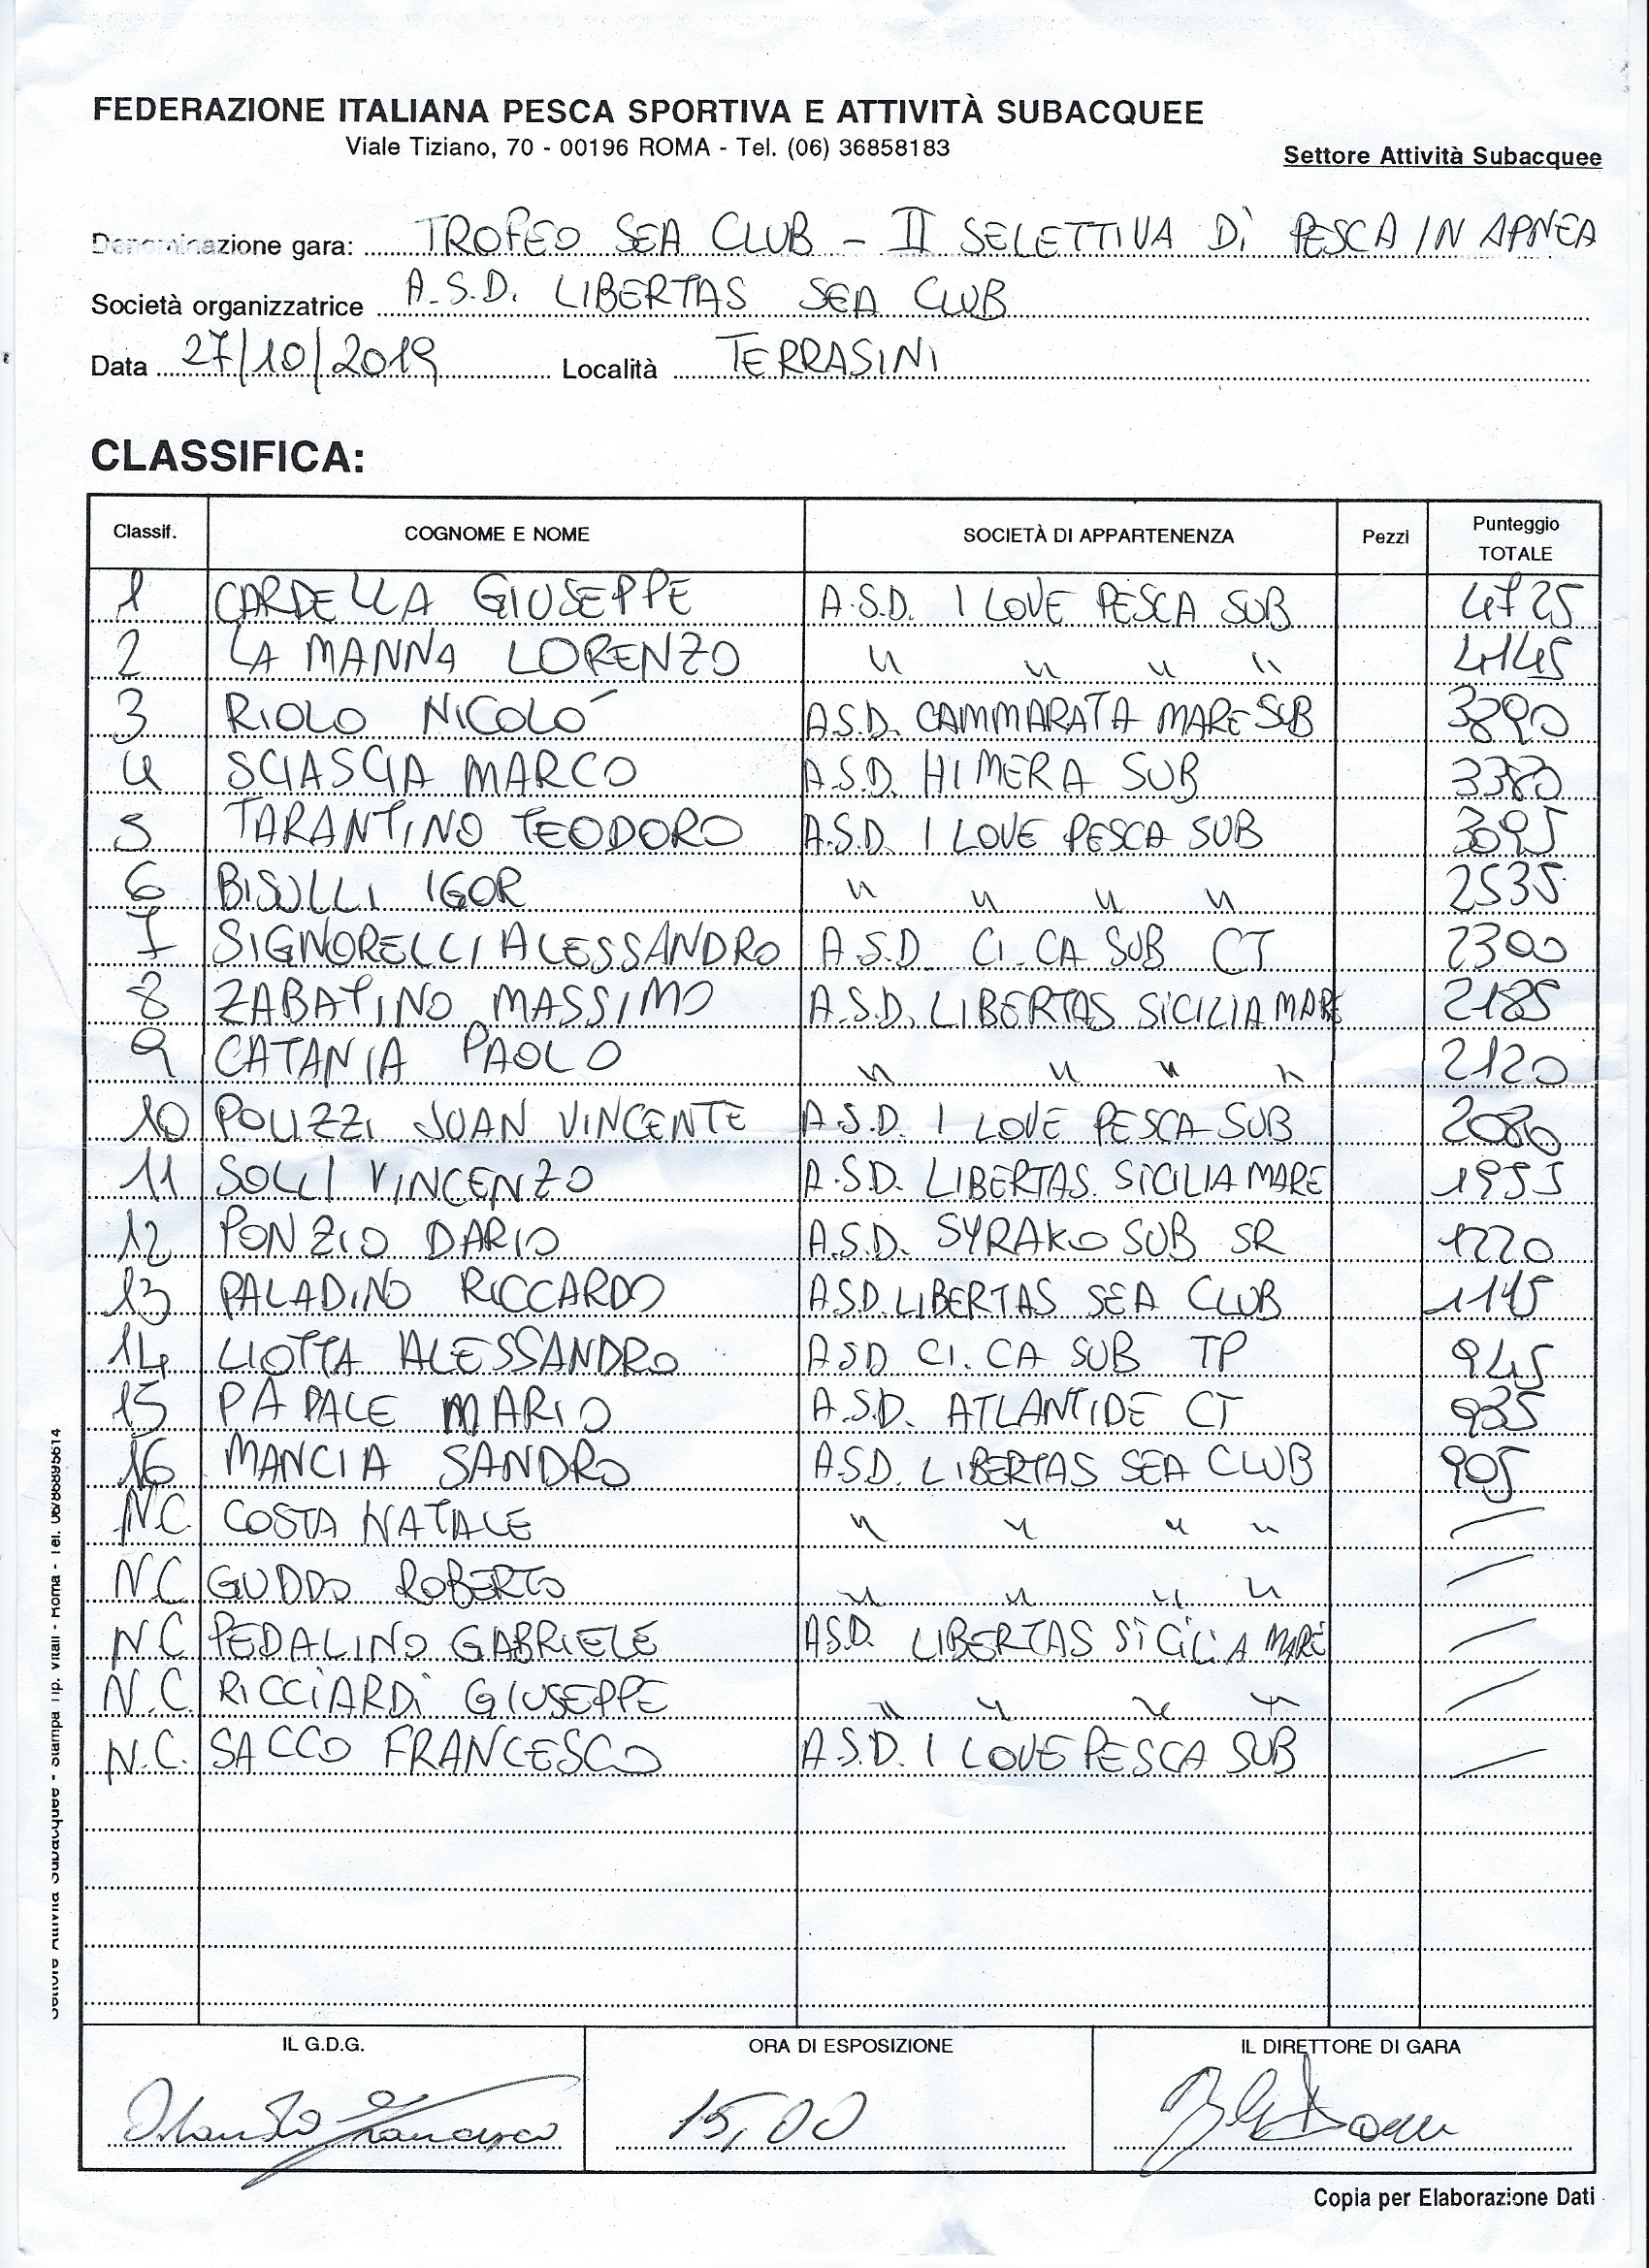 FEDERAZIONE ITALIANA PESCA SPORTIVA E ATTIVITÀ SUBACQUEE
Viale Tiziano, 70 - 00196 ROMA - Tel. (06) 36858183
Settore Attività Subacquee
Denominazione gara: TROFEO SEA CLUB - II SELETTIVA Dì PESCA IN APNEA
Società organizzatrice A.S.D. LIBERTAS SEA CLUB
Data 27/10/2019 Località TERRASINI
CLASSIFICA:
Classif. COGNOME E NOME SOCIETÀ DI APPARTENENZA Pezzi Punteggio TOTALE
1 CARDELLA GIUSEPPE A.S.D. I LOVE PESCA SUB 4725
2 LA MANNA LORENZO " " " " 4145
3 RIOLO NICOLO' A.S.D. CAMMARATA MARE SUB 3890
4 SCIASCIA MARCO A.S.D. HIMERA SUB 3380
5 TARANTINO TEODORO A.S.D. I LOVE PESCA SUB 3095
6 BISULLI IGOR " " " " 2535
7 SIGNORELLI ALESSANDRO A.S.D. CI.CA SUB CT 2300
8 ZABATINO MASSIMO A.S.D. LIBERTAS SICILIA MARE 2185
9 CATANIA PAOLO " " " " 2120
10 POLIZZI JUAN VINCENTE A.S.D. I LOVE PESCA SUB 2080
11 SOLLI VINCENZO A.S.D. LIBERTAS SICILIA MARE
12 PONZIO DARIO A.S.D. SYRAKO SUB SR 1220
13 PALADINO RICCARDO A.S.D. LIBERTAS SEA CLUB 1115
14 LIOTTA ALESSANDRO ASD CI.CA SUB TP 945
15 PAPALE MARIO A.S.D. ATLANTIDE CT 935
16 MANCIA SANDRO A.S.D. LIBERTAS SEA CLUB 905
N.C. COSTA NATALE " " " " —
N.C. GUDDO ROBERTO " " " " —
N.C. PEDALINO GABRIELE A.S.D. LIBERTAS SICILIA MARE —
N.C. RICCIARDI GIUSEPPE " " " " —
N.C. SACCO FRANCESCO A.S.D. I LOVE PESCA SUB —
IL G.D.G. ORA DI ESPOSIZIONE IL DIRETTORE DI GARA
Francesco 15,00
Copia per Elaborazione Dati
Settore Attività Subacquee - Stampa Tip. Vitali - Roma - Tel.